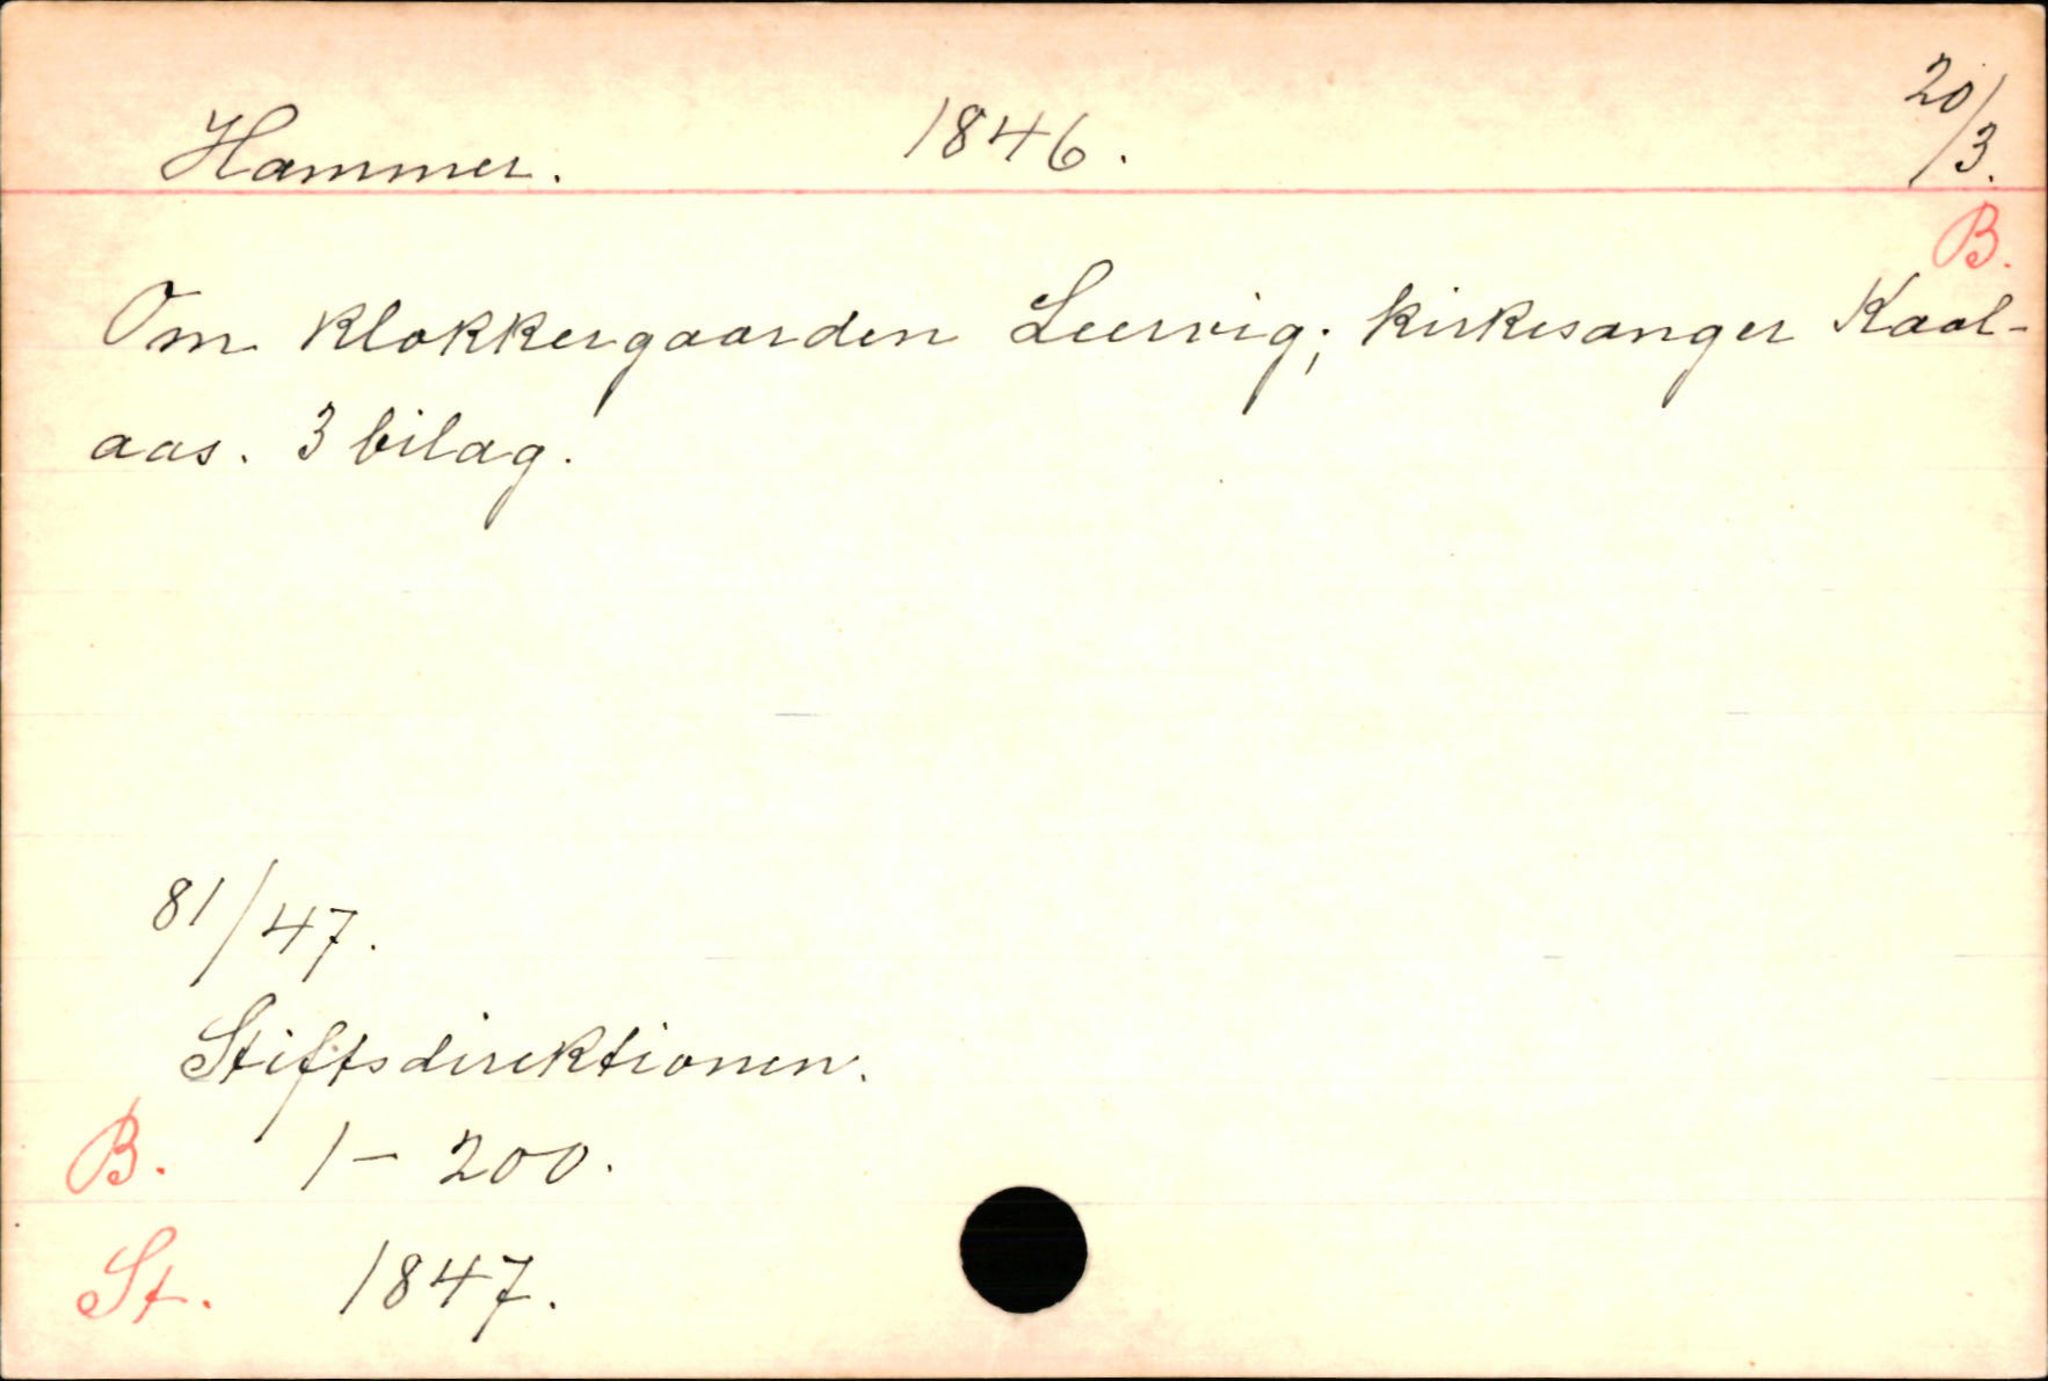 Hammer. 1846. 20/3.
B.
Om klokkergaarden Leervig; kirkesanger Kaal-
aas. 3 bilag.
81/47.
Stiftsdirektionen.
B. 1 – 200.
St. 1847.